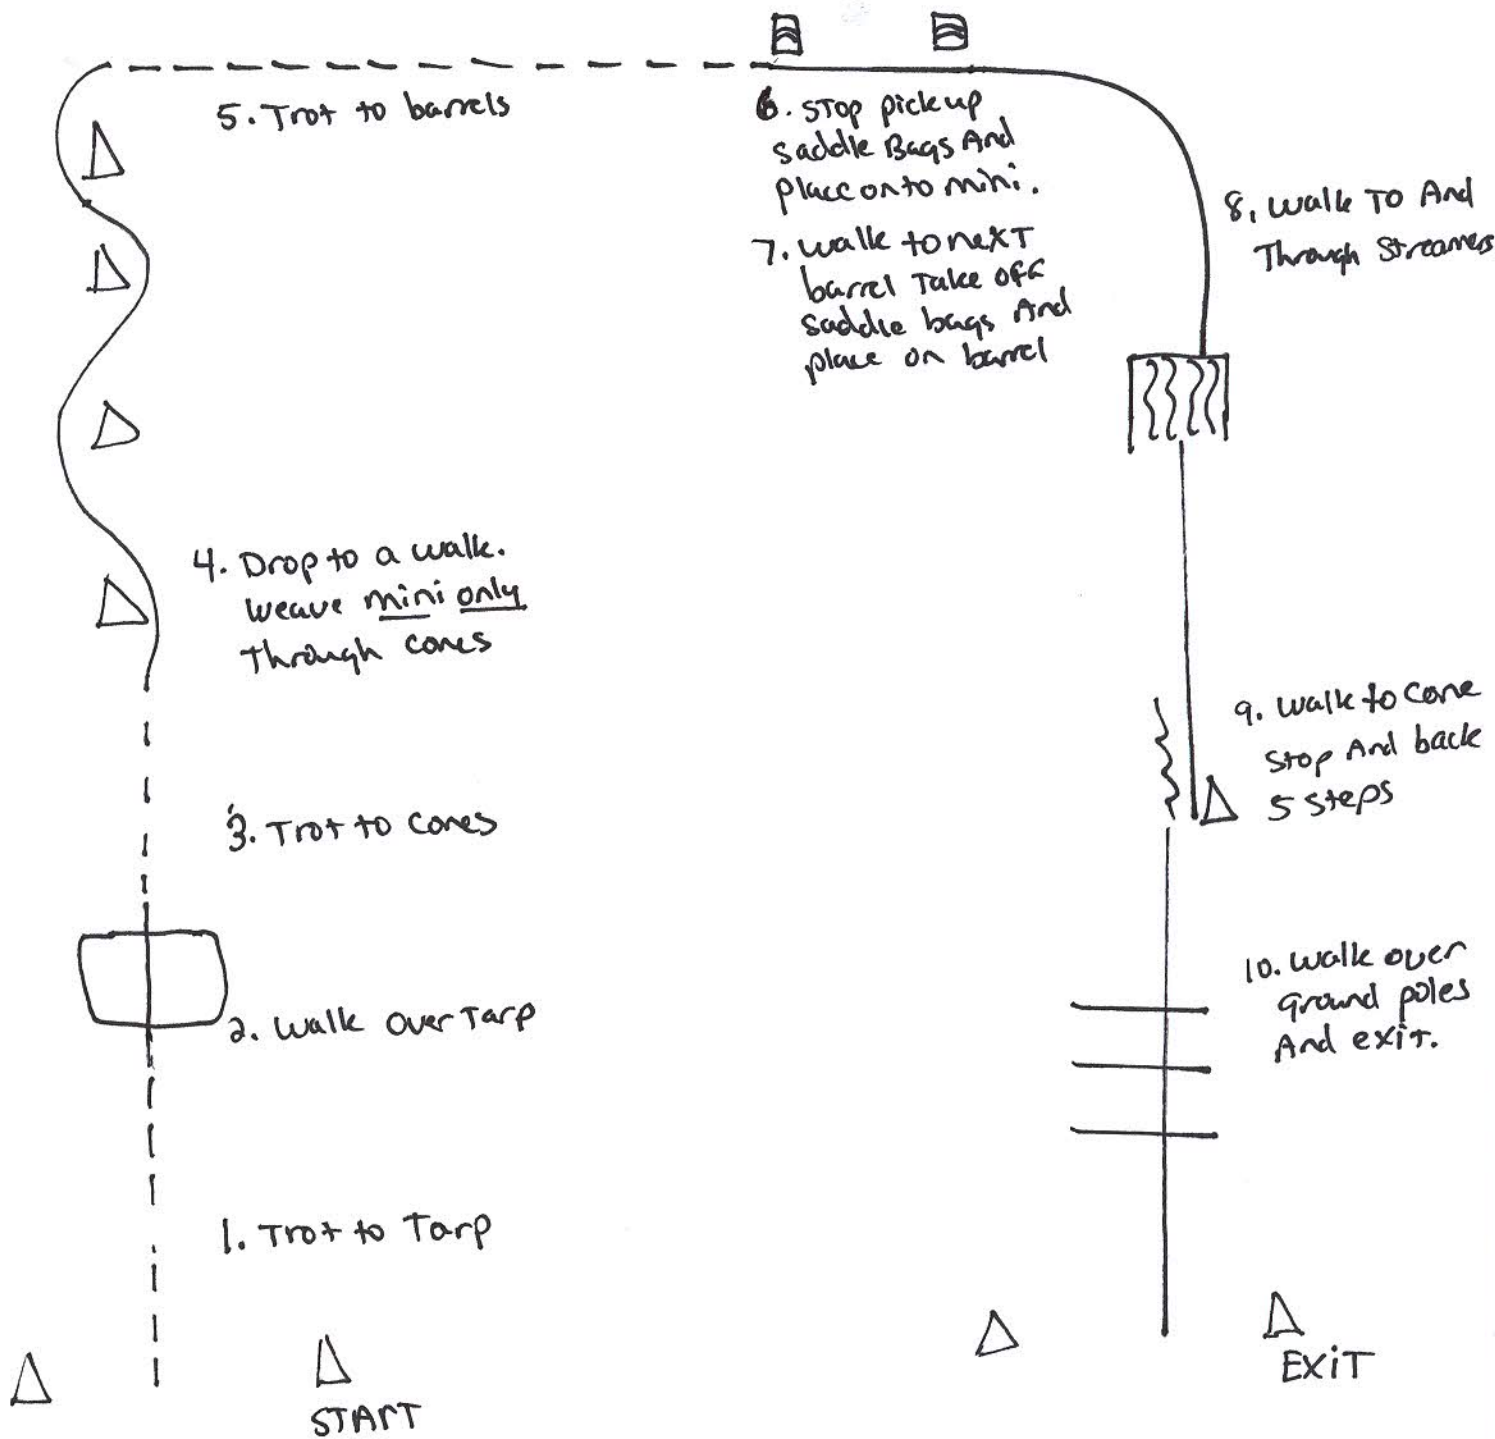 5. Trot to barrels
6. STOP pick up
saddle Bags And
place onto mini.
7. walk to nexT
barrel Take off
saddle bags And
place on barrel
8. walk To And
Through Streamers
4. Drop to a walk.
weave mini only
Through cones
9. walk to Cone
Stop And back
5 Steps
3. Trot to Cones
10. walk over
Ground poles
And exit.
2. Walk Over Tarp
1. Trot to Tarp
EXiT
START